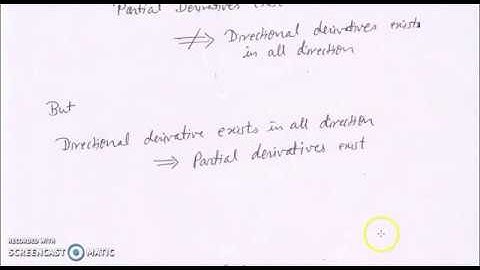 Partial Derivatives
⇏ Directional derivatives exists
in all direction
But
Directional derivative exists in all direction
⇒ Partial derivatives exist
RECORDED WITH
SCREENCAST MATIC